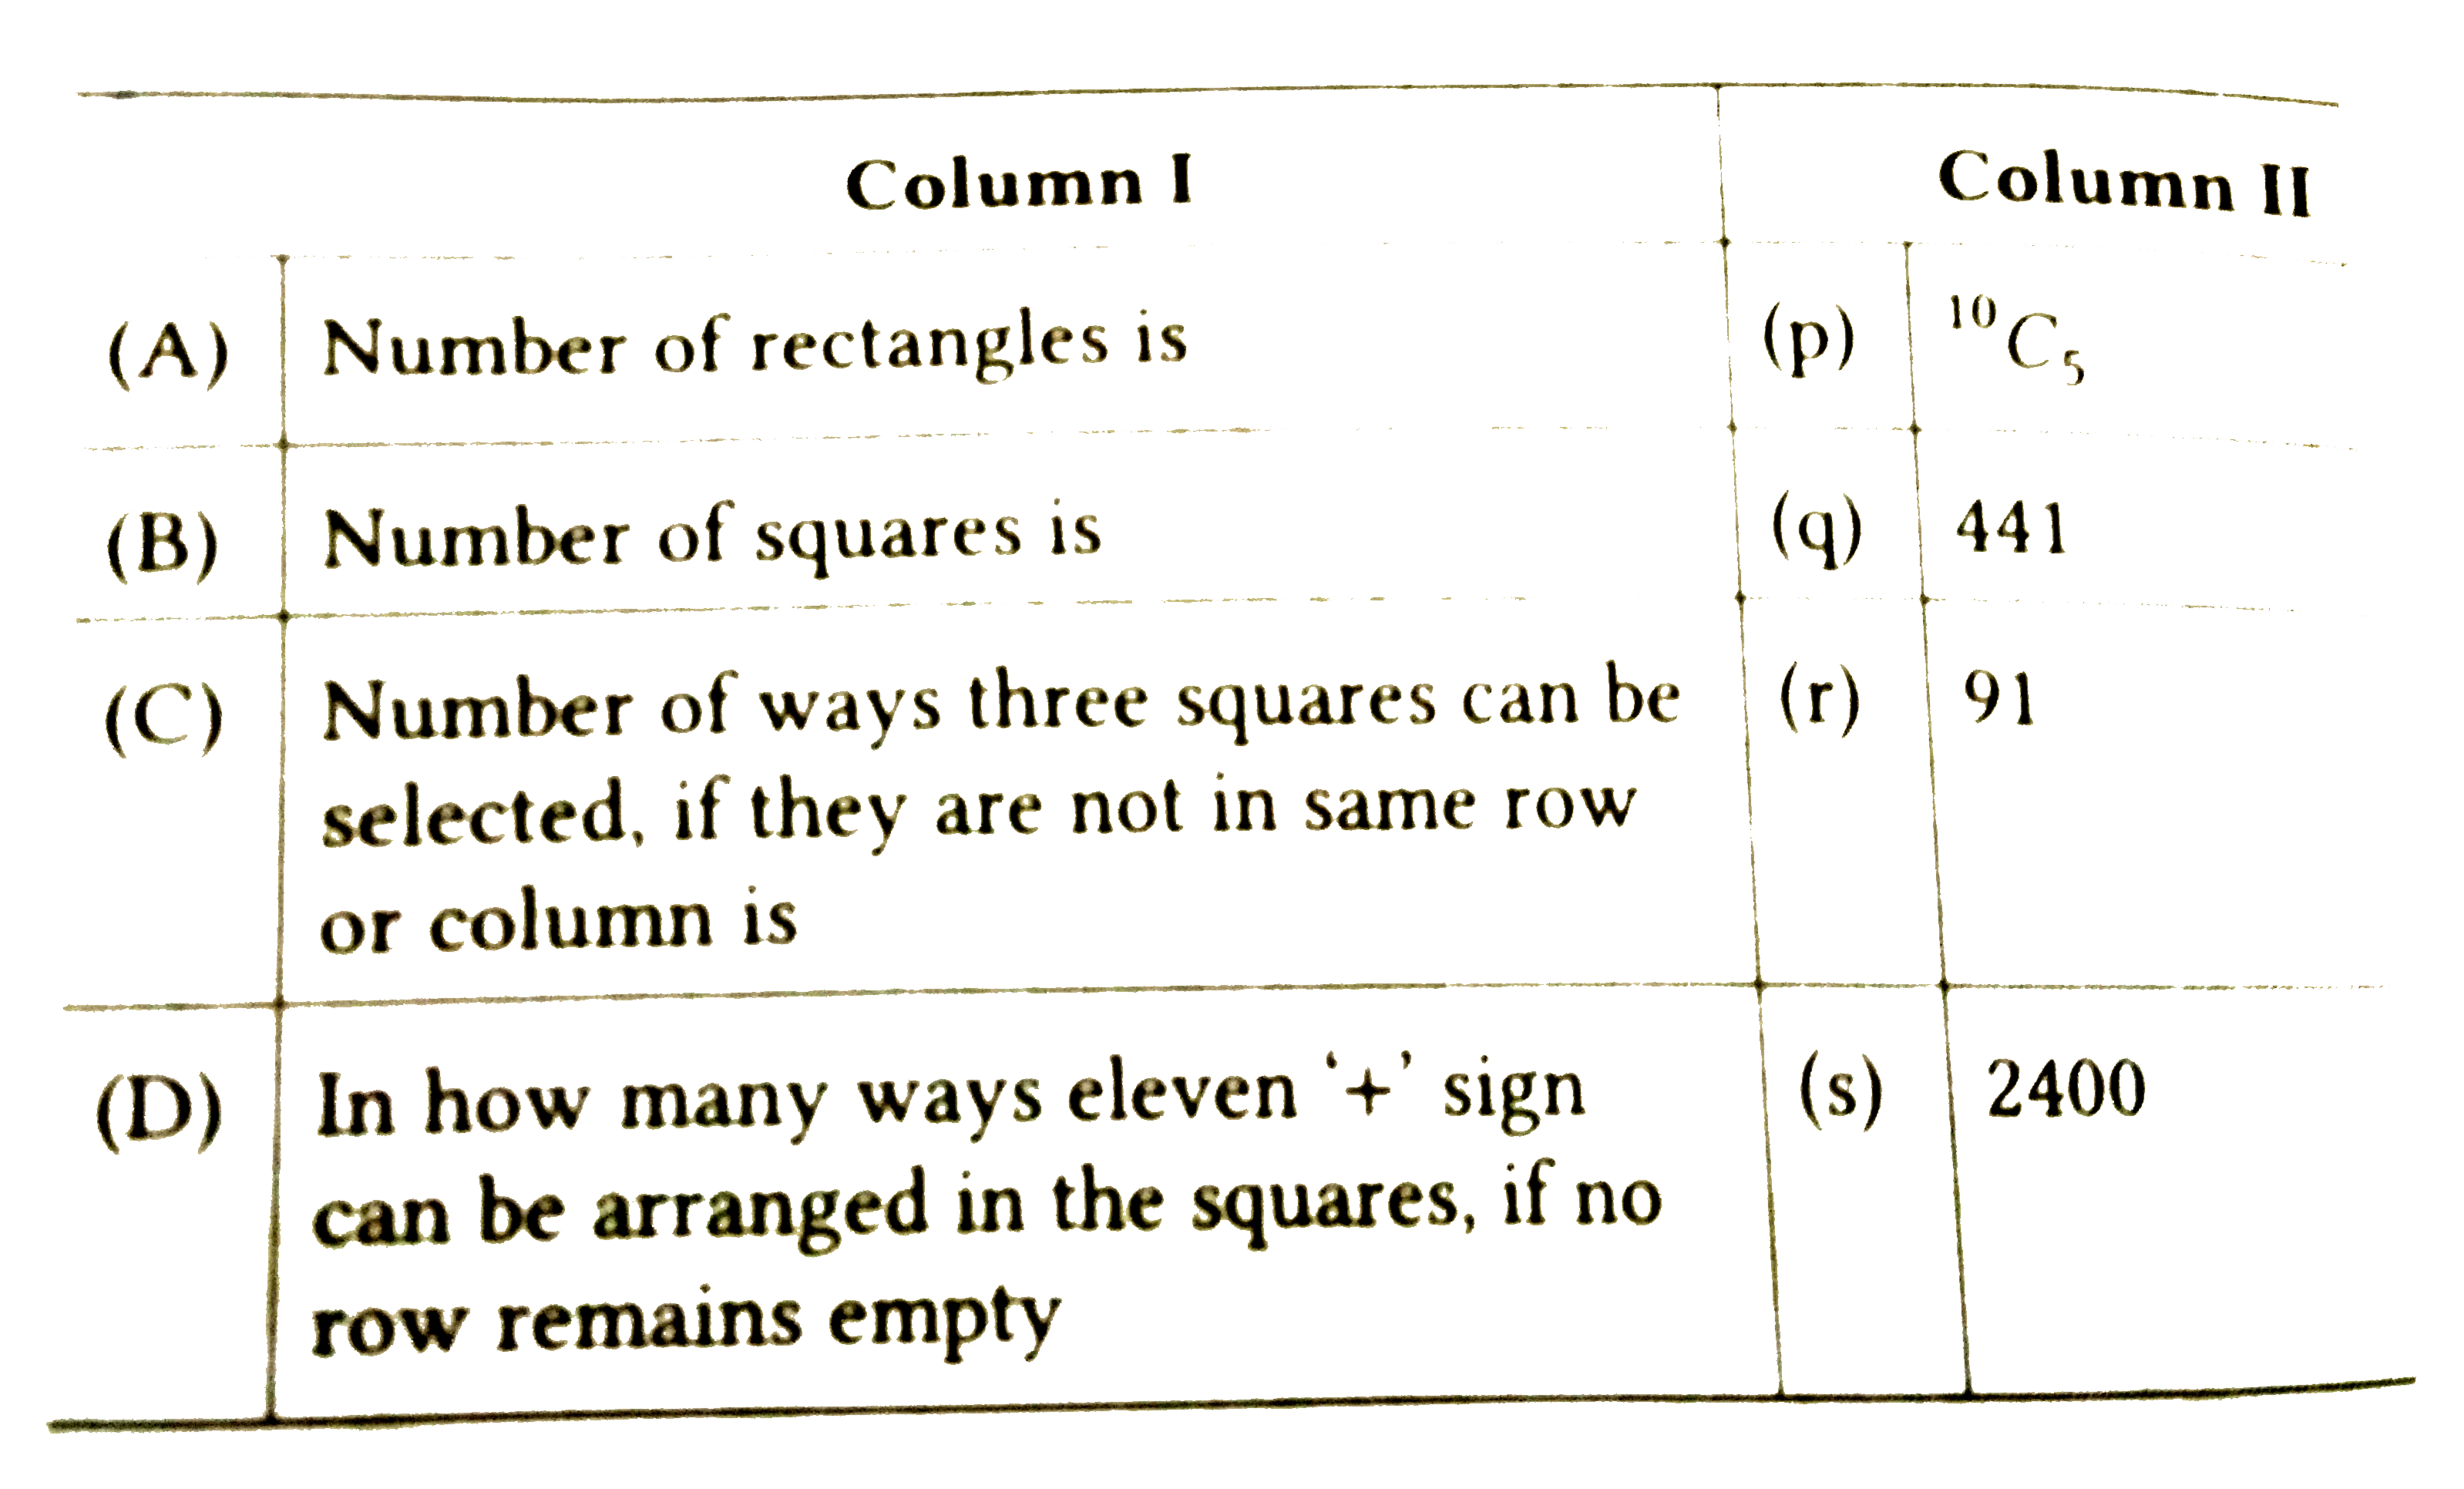 Column I Column II
(A) Number of rectangles is (p) ¹⁰C₅
(B) Number of squares is (q) 441
(C) Number of ways three squares can be (r) 91
selected, if they are not in same row
or column is
(D) In how many ways eleven ‘+’ sign (s) 2400
can be arranged in the squares, if no
row remains empty